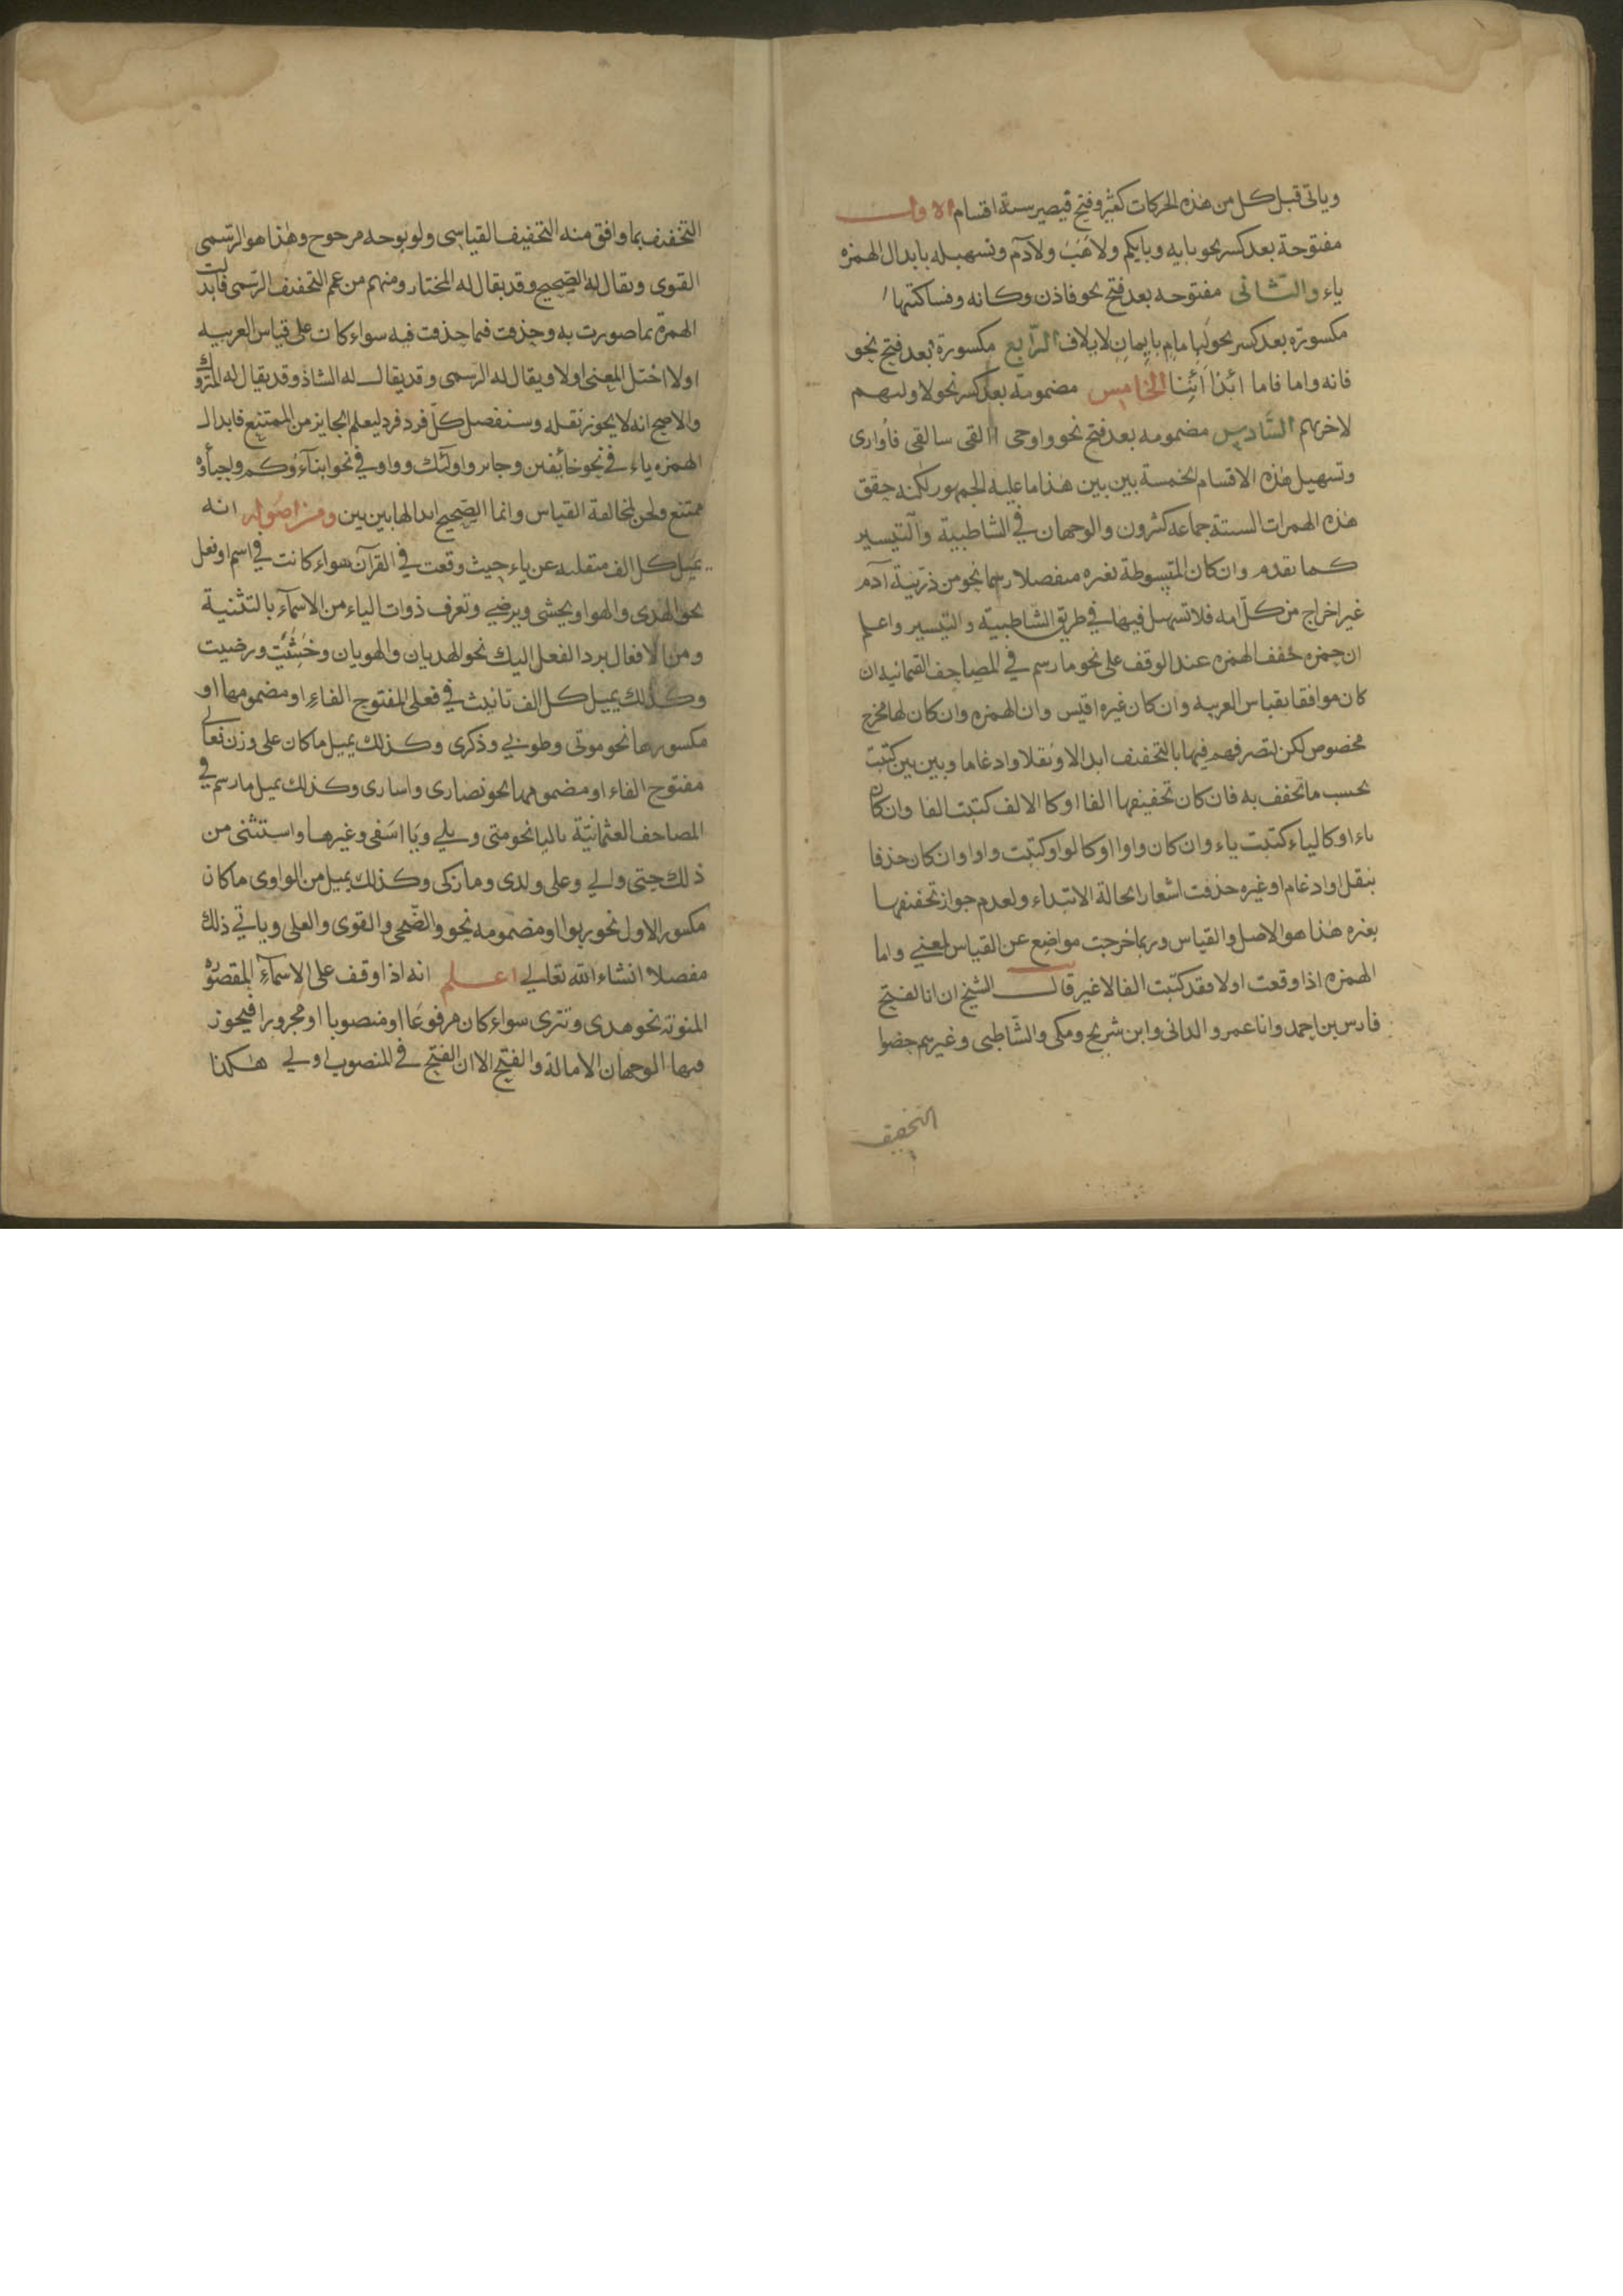 وياتى قبل كل من هذه الحركات كسر وفتح فيصير ستة اقسام الاول
مفتوحة بعد كسر نحو بايه وبايكم ولاهب ولآدم وتسهيله بابدال الهمزه
ياء والثانى مفتوحه بعد فتح نحو فاذن وكانه وفساكتبها
مكسورة بعد كسر نحو لبامام بايمان لايلاف الرابع مكسورة بعد فتح نحو
فانه واما فاما ائذا ائنا الخامس مضمومة بعد كسر نحو لاولهم
لاخرهم السادس مضمومه بعد فتح نحو واوحى االقى سالقى فأوارى
وتسهيل هذه الاقسام الخمسة بين بين هذا ما عليه الجمهور لكنه حقق
هذه الهمزات الستة جماعه كثرون والوجهان فى الشاطبية والتيسير
كما تقدم وان كان المتوسطة بغيره منفصلا رسما نحو من ذرّيّة آدم
غير اخراج من كلّ امه فلا تسهيل فيها فى طريق الشاطبيّة والتيسير واعلم
ان حمزه خفف الهمزه عند الوقف على نحو ما رسم فى المصاحف العثمانيه ان
كان موافقا بقياس العربيه وان كان غيره اقيس وان الهمزه وان كان لها مخرج
مخصوص لكن لتصرفهم فيها بالتخفيف ابدالا ونقلا وادغاما وبين بين كتبت
بحسب ما تخفف به فان كان تخفيفها الفا او كالالف كتبت الفا وان كان
ياء او كالياء كتبت ياء وان كان واوا او كالواو كتبت واوا وان كان حذفا
بنقل او ادغام او غيره حذفت اشعارا بحالة الابتداء ولعدم جواز تخفيفها
بغيره هذا هو الاصل والقياس وربما خرجت مواضع عن القياس لمعنى واما
الهمزه اذا وقعت اولا فقد كتبت الفا لا غير قال الشيخ ان ابا الفتح
فارس بن احمد وابا عمرو الدانى وابن شريح ومكى والشاطبى وغيرهم خصوا
التخفيف
التخفيف بما وافق منه التخفيف القياسى ولو بوجه مرجوح وهذا هو الرسمى
القوى ويقال له الصحيح وقد يقال له المختار ومنهم من عمم التخفيف الرسمى فابدلت
الهمزة بما صورت به وحذفت فيما حذفت فيه سواء كان على قياس العربيه
اولا اختل المعنى اولا ويقال له الرسمى وقد يقال له الشاذ وقد يقال له المتروك
والاصح انه لا يجوز نقله وسنفصل كلّ فرد فرد ليعلم الجايز من الممتنع فابدال
الهمزه ياء فى نحو خائفين وجاير واولئك وواو فى نحو ابناؤكم واحباؤه
ممتنع ولحن لمخالفة القياس وانما الصحيح ابدالها بين بين ومن اصوله انه
يميل كل الف منقلبه عن ياء حيث وقعت فى القرآن سواء كانت فى اسم او فعل
نحو الهدى والهوا ويخشى ويرضى وتعرف ذوات الياء من الاسماء بالتثنية
ومن الافعال برد الفعل اليك نحو الهديان والهويان وخشيت ورضيت
وكذلك يميل كل الف تانيث فى فعلى المفتوح الفاء او مضمومها او
مكسورها نحو موتى وطوبى وذكرى وكذلك يميل ما كان على وزن فعالى
مفتوح الفاء او مضمومها نحو نصارى واسارى وكذلك يميل ما رسم فى
المصاحف العثمانيّة بالياء نحو متى وبلى ويا اسفى وغيرها واستثنى من
ذلك حتى والى وعلى ولدى وما زكى وكذلك يميل من الواوى ما كان
مكسور الاول نحو ربوا او مضمومه نحو والضّحى والقوى والعلى وياتى ذلك
مفصلا انشاء الله تعالى اعلم انه اذا وقف على الاسماء المقصورة
المنونة نحو هدى وتترى سواء كان مرفوعا او منصوبا او مجرورا فيجوز
فيها الوجهان الامالة والفتح الا ان الفتح فى المنصوب اولى هكذا